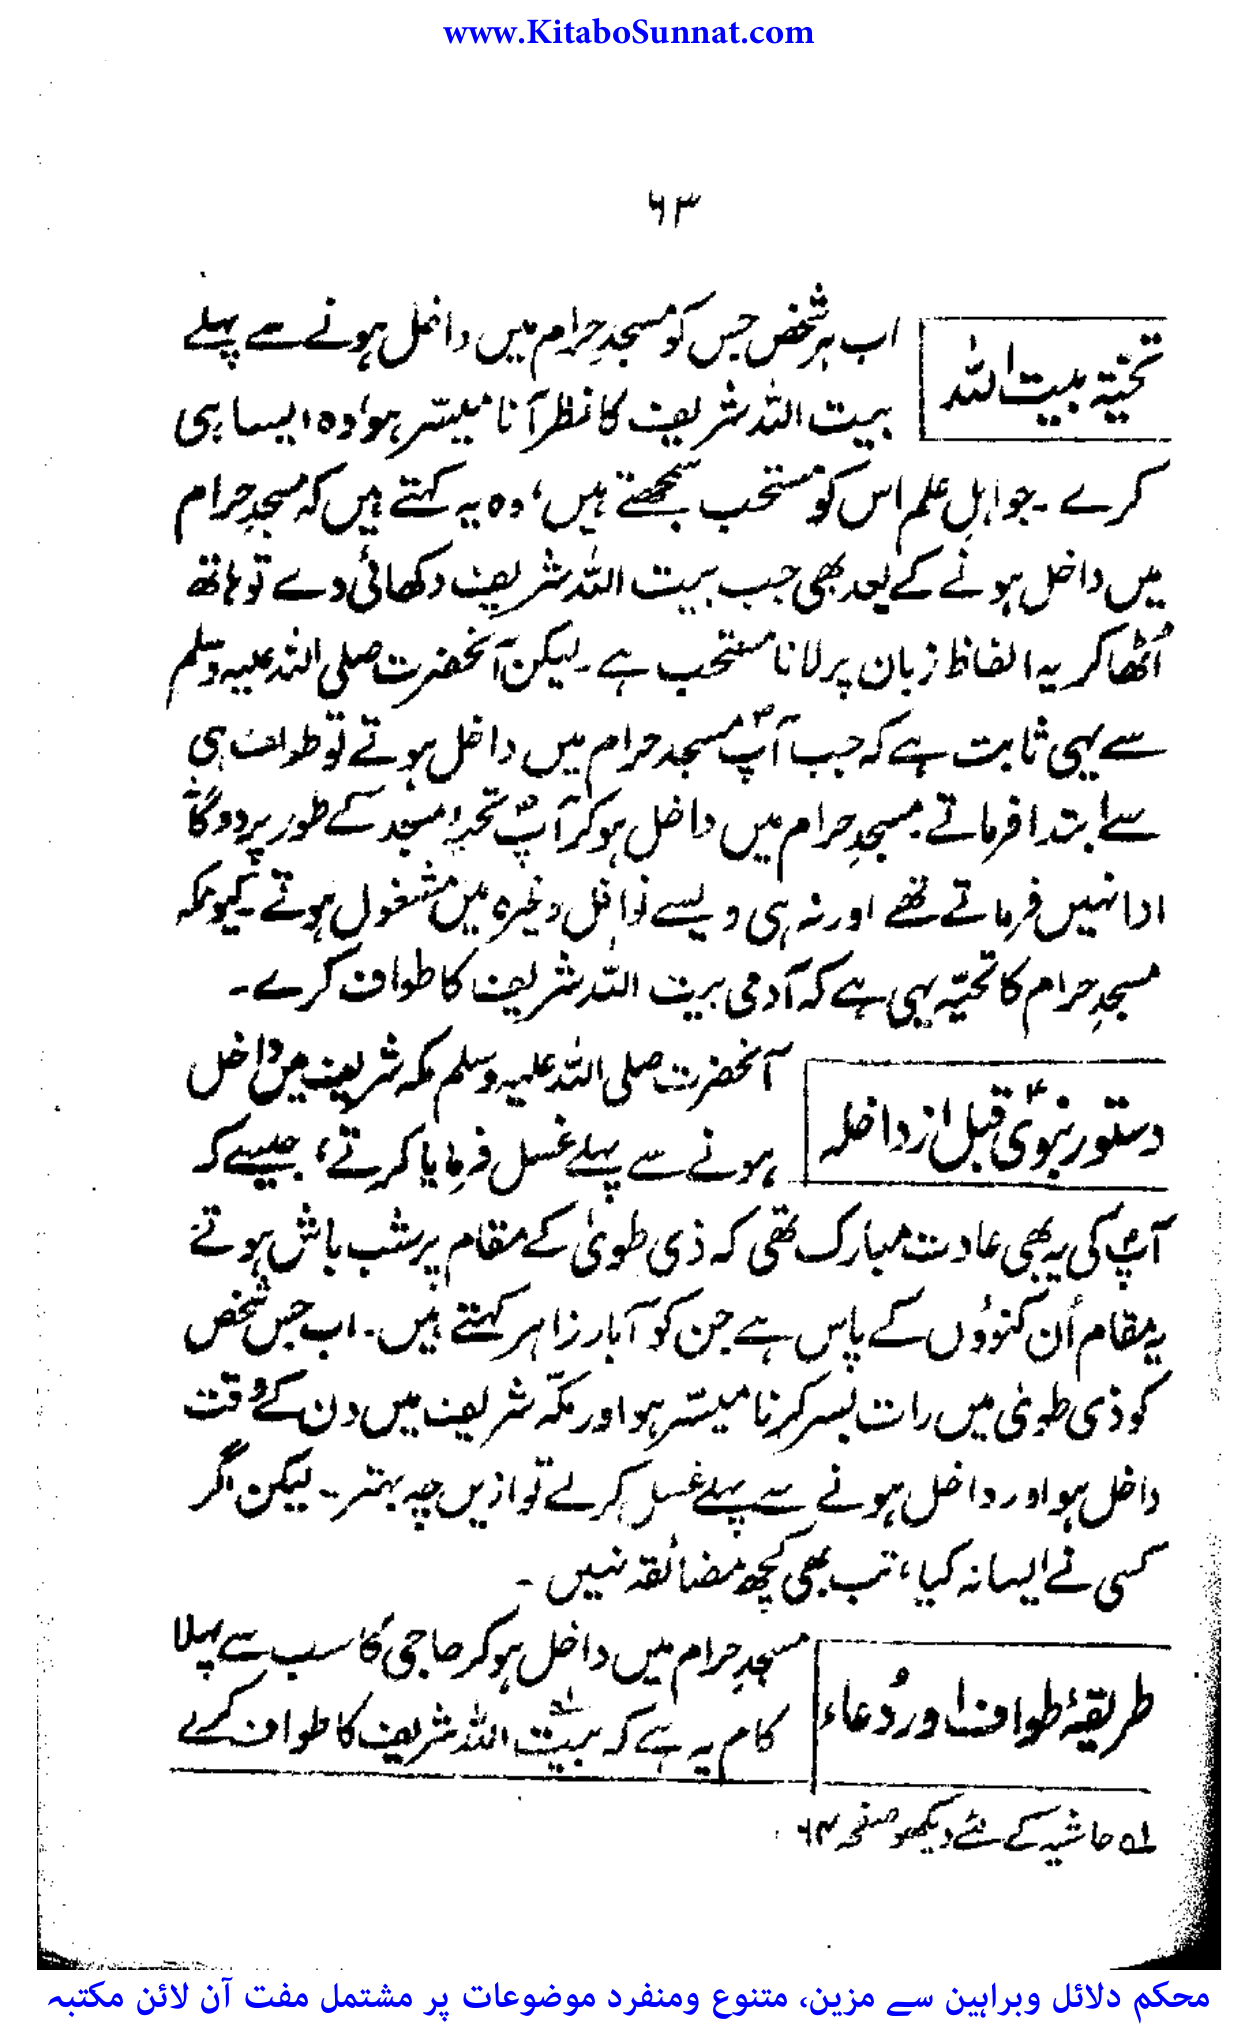 www.KitaboSunnat.com
۶۳
تحیّۃ بیت اللہ
اب ہر شخص جس کو مسجدِ حرام میں داخل ہونے سے پہلے
بیت اللہ شریف کا نظر آنا میسّر ہو، وہ ایسا ہی
کرے ۔ جو اہلِ علم اس کو مستحب سمجھتے ہیں، وہ یہ کہتے ہیں کہ مسجدِ حرام
میں داخل ہونے کے بعد بھی جب بیت اللہ شریف دکھائی دے تو ہاتھ
اُٹھا کر یہ الفاظ زبان پر لانا مستحب ہے ۔ لیکن آنحضرت صلی اللہ علیہ وسلم
سے یہی ثابت ہے کہ جب آپؐ مسجد حرام میں داخل ہوتے تو طواف ہی
سے ابتدا فرماتے ۔ مسجدِ حرام میں داخل ہو کر آپؐ تحیۃ المسجد کے طور پر دوگانہ
ادا نہیں فرماتے تھے اور نہ ہی ویسے نوافل وغیرہ میں مشغول ہوتے ۔ کیونکہ
مسجدِ حرام کا تحیّہ یہی ہے کہ آدمی بیت اللہ شریف کا طواف کرے ۔
دستور نبویؐ قبل از داخلہ
آنحضرت صلی اللہ علیہ وسلم مکہ شریف میں داخل
ہونے سے پہلے غسل فرمایا کرتے، جیسے کہ
آپؐ کی یہ بھی عادت مبارک تھی کہ ذی طویٰ کے مقام پر شب باش ہوتے
یہ مقام اُن کنوؤں کے پاس ہے جن کو آبار زاہر کہتے ہیں ۔ اب جس شخص
کو ذی طویٰ میں رات بسر کرنا میسّر ہو اور مکّہ شریف میں دن کے وقت
داخل ہو اور داخل ہونے سے پہلے غسل کر لے تو ازیں چہ بہتر ۔ لیکن اگر
کسی نے ایسا نہ کیا، تب بھی کچھ مضائقہ نہیں ۔
طریقۂ طواف اور دُعاء
مسجدِ حرام میں داخل ہو کر حاجی کا سب سے پہلا
کام یہ ہے کہ بیت اللہ شریف کا طواف کرے
لہ حاشیہ کے لئے دیکھو صفحہ ۶۴
محکم دلائل وبراہین سے مزین، متنوع ومنفرد موضوعات پر مشتمل مفت آن لائن مکتبہ